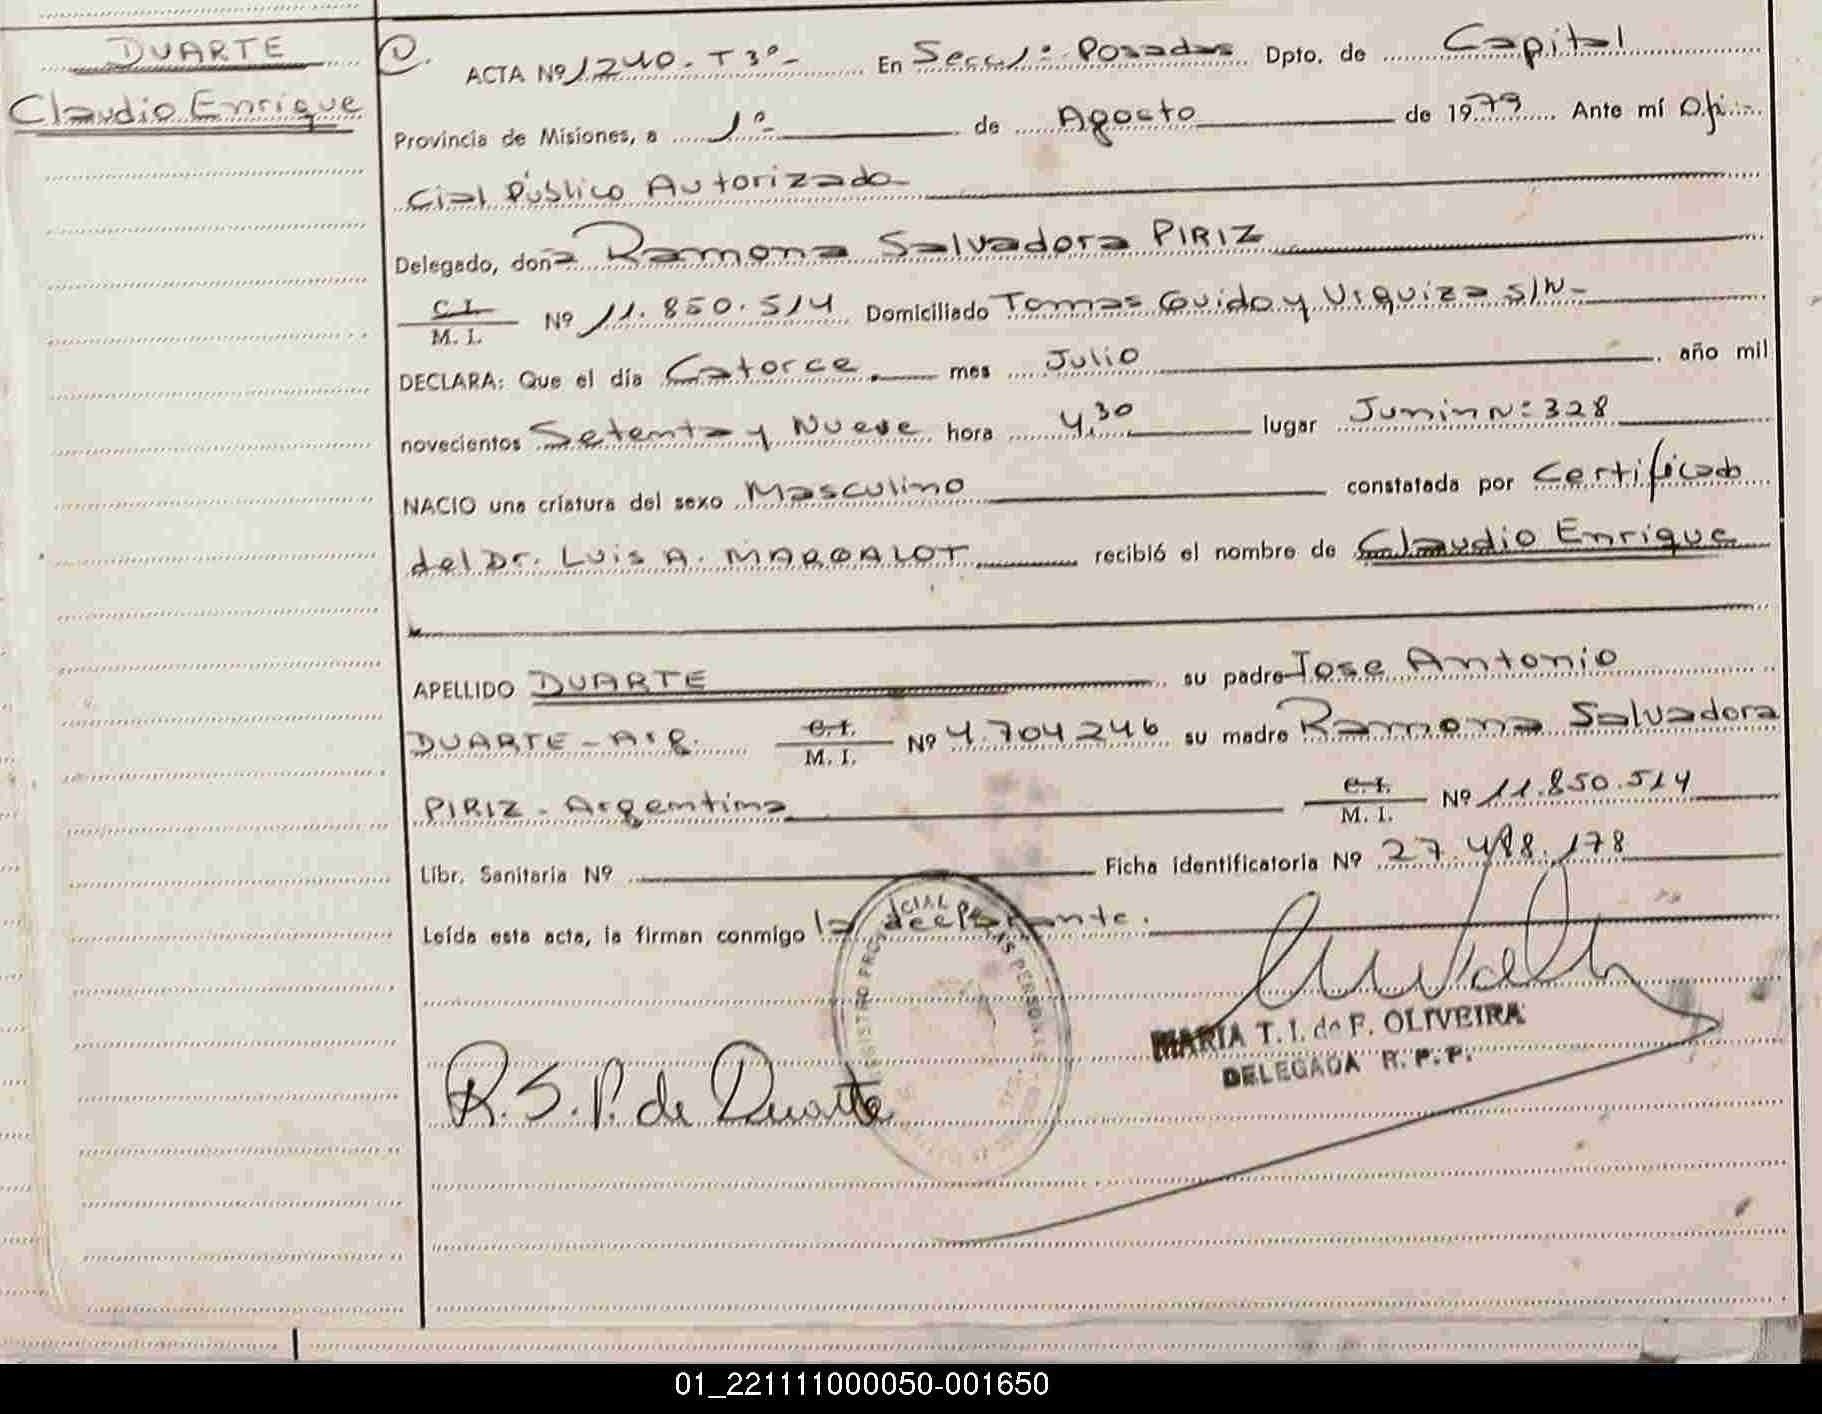 DUARTE
Claudio Enrique
ACTA Nº 1240. T 3º- En Secc. 1ª- Posadas Dpto. de Capital
Provincia de Misiones, a 1º de Agosto de 1979 Ante mí Ofi-
cial Público Autorizado
Delegado, doña Ramona Salvadora PIRIZ
C.I. M. I. Nº 11.850.514 Domiciliado Tomas Guido y Urquiza S/N-
DECLARA: Que el día Catorce mes Julio año mil
novecientos Setenta y Nueve hora 4,30 lugar Junin Nº 328
NACIO una criatura del sexo Masculino constatada por Certificado
del Dr. Luis A. MARGALOT recibió el nombre de Claudio Enrique
APELLIDO DUARTE su padre Jose Antonio
DUARTE - Arg. C.I. M. I. Nº 4.704.246 su madre Ramona Salvadora
PIRIZ - Argentina C.I. M. I. Nº 11.850.514
Libr. Sanitaria Nº Ficha identificatoria Nº 27.498.178
Leída esta acta, la firman conmigo la declarante.
R. S. P. de Duarte
MARIA T. I. de F. OLIVEIRA
DELEGADA R. P. P.
01_221111000050-001650